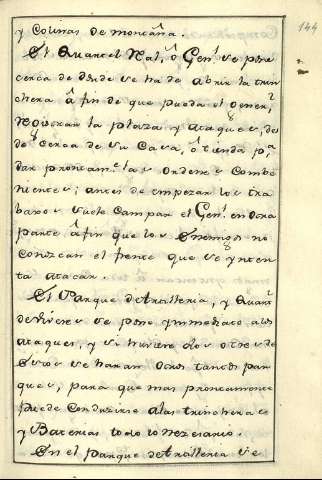 144
y Colinas de montaña.
El Quartel Ral, ô Genl se pone
cerca de donde se ha de abrir la trin
chera â fin de que pueda el Generl
Rejistrar la plaza y ataques, des
de cerca de su Casa, ô tienda pa
dar prontamte las Ordenes Combe
nientes; antes de empezar los tra
baxos suele campar el Genl en otra
parte â fin que los Enemigos no
conozcan el frente que se ynten
ta atacar.
El Parque de Artilleria, y Quartl
de Viveres se pone ynmediato a los
ataques, y si huviere dos o tres de
estos se haran otros tantos par
ques, para que mas prontamente
puede conduzirse a las trincheras
y Baterias todo lo nezesario.
En el parque de Artilleria se